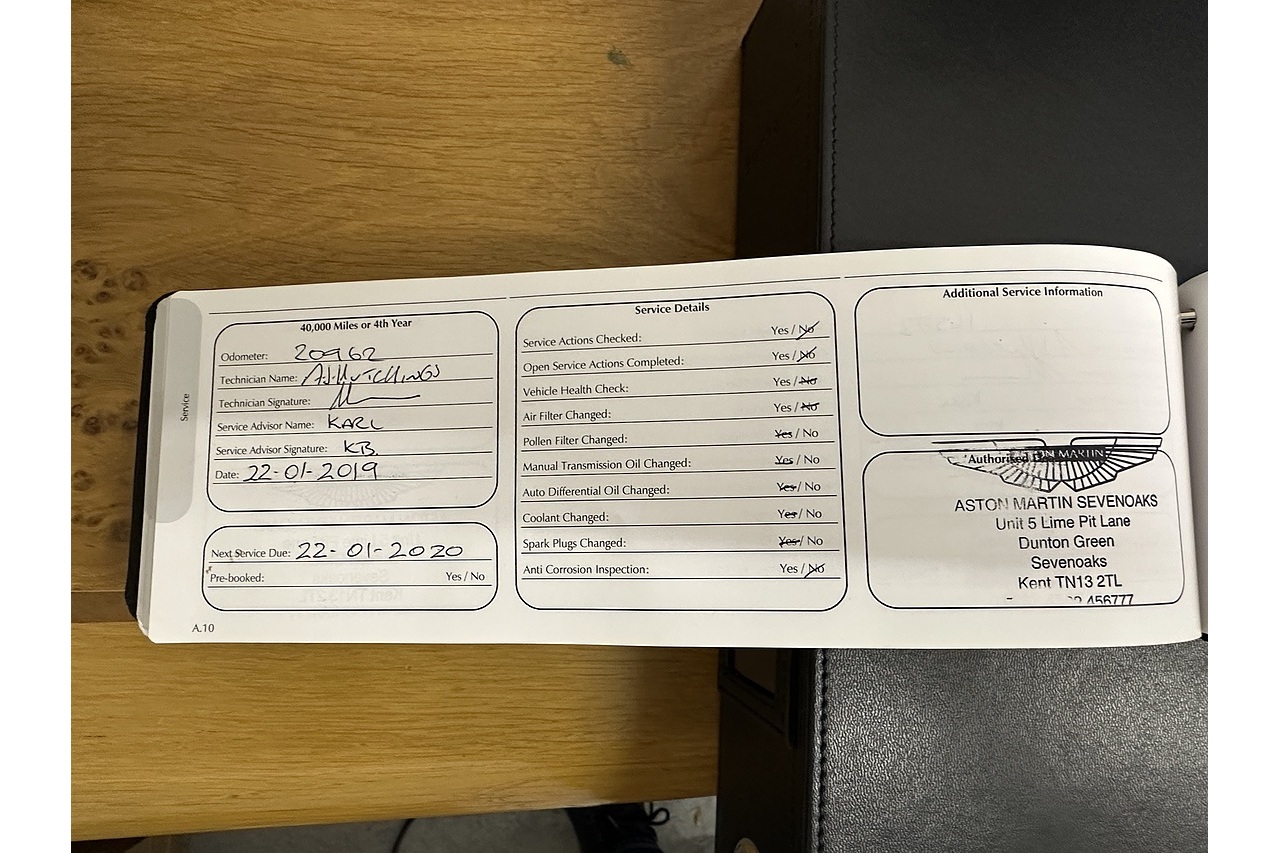 Service
40,000 Miles or 4th Year
Odometer: 20962
Technician Name: A.J.HUTCHINGS
Technician Signature:
Service Advisor Name: KARL
Service Advisor Signature: KB.
Date: 22-01-2019
Next Service Due: 22-01-2020
Pre-booked: Yes / No
A.10
Service Details
Service Actions Checked: Yes / No
Open Service Actions Completed: Yes / No
Vehicle Health Check: Yes / No
Air Filter Changed: Yes / No
Pollen Filter Changed: Yes / No
Manual Transmission Oil Changed: Yes / No
Auto Differential Oil Changed: Yes / No
Coolant Changed: Yes / No
Spark Plugs Changed: Yes / No
Anti Corrosion Inspection: Yes / No
Additional Service Information
Authorised
MARTIN
ASTON MARTIN SEVENOAKS
Unit 5 Lime Pit Lane
Dunton Green
Sevenoaks
Kent TN13 2TL
456777